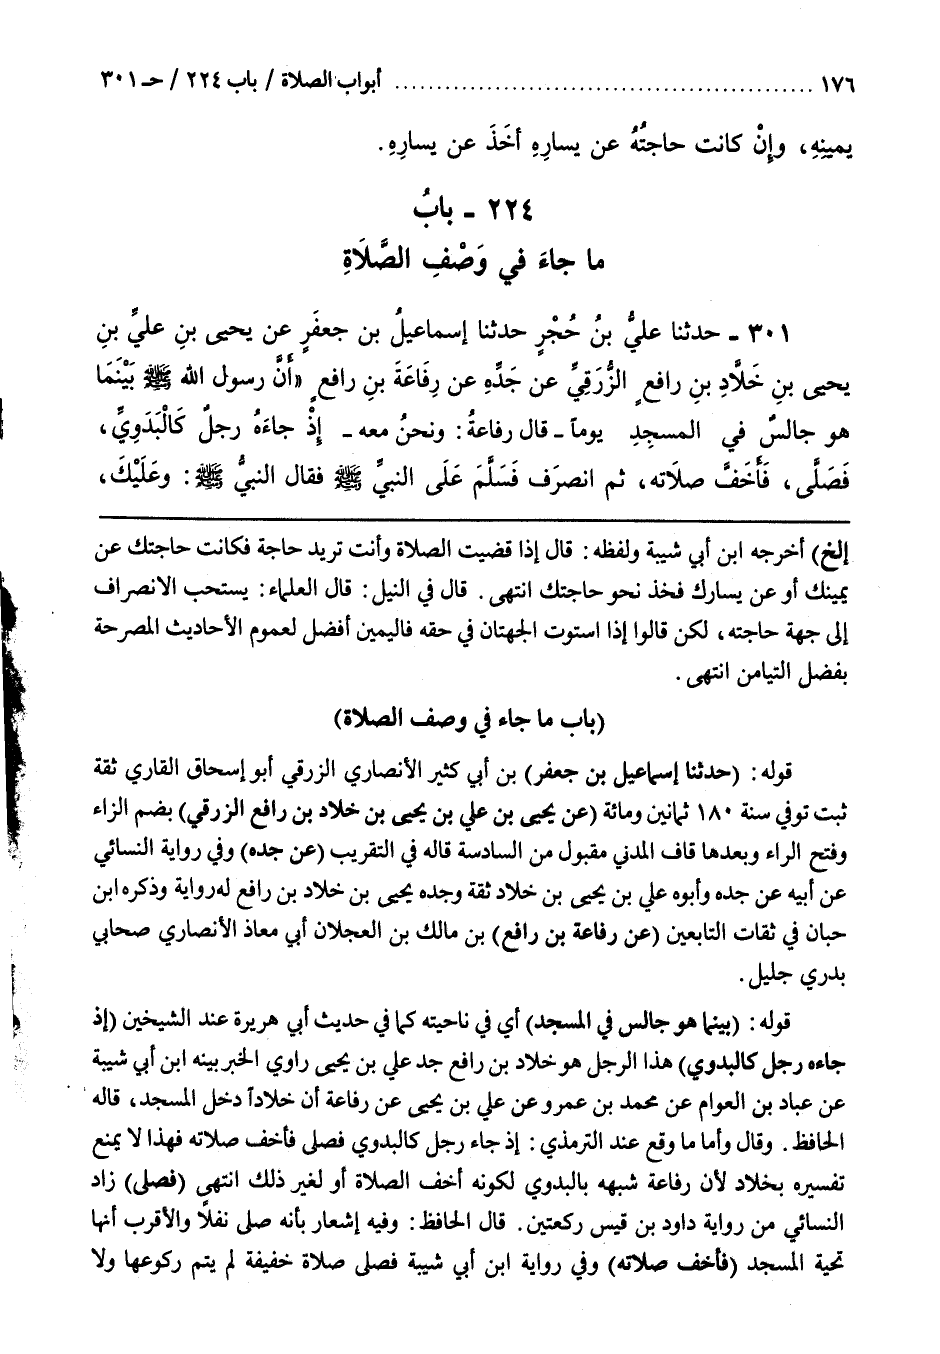 ١٧٦ ........................................ أبواب الصلاة / باب ٢٢٤ / حـ ٣٠١
يمينِهِ، وإنْ كانت حاجتُهُ عن يسارِهِ أخَذَ عن يسارِهِ.
٢٢٤ ـ بابُ
ما جاءَ في وَصْفِ الصَّلَاةِ
٣٠١ ـ حدثنا عليُّ بنُ حُجْرٍ حدثنا إسماعيلُ بن جعفَرٍ عن يحيى بنِ عليِّ بنِ
يحيى بنِ خَلَّادِ بنِ رافعٍ الزُّرَقِيِّ عن جَدِّهِ عن رِفَاعَةَ بنِ رافعٍ «أَنَّ رسول الله ﷺ بَيْنَمَا
هو جالسٌ في المسجِدِ يوماً ـ قال رفاعةُ: ونحنُ معه ـ إذْ جاءَهُ رجلٌ كَالْبَدَوِيِّ،
فَصَلَّى، فَأَخَفَّ صلاتَه، ثم انصرَف فَسَلَّمَ عَلَى النبيِّ ﷺ فقال النبيُّ ﷺ: وعَلَيْكَ،
إلخ) أخرجه ابن أبي شيبة ولفظه: قال إذا قضيت الصلاة وأنت تريد حاجة فكانت حاجتك عن
يمينك أو عن يسارك فخذ نحو حاجتك انتهى. قال في النيل: قال العلماء: يستحب الانصراف
إلى جهة حاجته، لكن قالوا إذا استوت الجهتان في حقه فاليمين أفضل لعموم الأحاديث المصرحة
بفضل التيامن انتهى.
(باب ما جاء في وصف الصلاة)
قوله: (حدثنا إسماعيل بن جعفر) بن أبي كثير الأنصاري الزرقي أبو إسحاق القاري ثقة
ثبت توفي سنة ١٨٠ ثمانين ومائة (عن يحيى بن علي بن يحيى بن خلاد بن رافع الزرقي) بضم الزاء
وفتح الراء وبعدها قاف المدني مقبول من السادسة قاله في التقريب (عن جده) وفي رواية النسائي
عن أبيه عن جده وأبوه علي بن يحيى بن خلاد ثقة وجده يحيى بن خلاد بن رافع له رواية وذكره ابن
حبان في ثقات التابعين (عن رفاعة بن رافع) بن مالك بن العجلان أبي معاذ الأنصاري صحابي
بدري جليل.
قوله: (بينما هو جالس في المسجد) أي في ناحيته كما في حديث أبي هريرة عند الشيخين (إذ
جاءه رجل كالبدوي) هذا الرجل هو خلاد بن رافع جد علي بن يحيى راوي الخبر بينه ابن أبي شيبة
عن عباد بن العوام عن محمد بن عمرو عن علي بن يحيى عن رفاعة أن خلاداً دخل المسجد، قاله
الحافظ. وقال وأما ما وقع عند الترمذي: إذ جاء رجل كالبدوي فصلى فأخف صلاته فهذا لا يمنع
تفسيره بخلاد لأن رفاعة شبهه بالبدوي لكونه أخف الصلاة أو لغير ذلك انتهى (فصلى) زاد
النسائي من رواية داود بن قيس ركعتين. قال الحافظ: وفيه إشعار بأنه صلى نفلاً والأقرب أنها
تحية المسجد (فأخف صلاته) وفي رواية ابن أبي شيبة فصلى صلاة خفيفة لم يتم ركوعها ولا